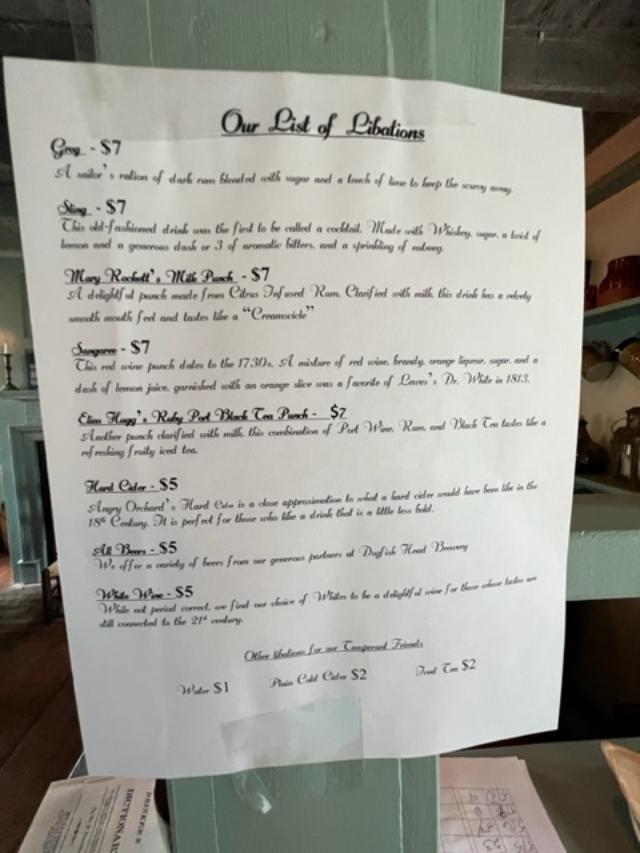 Our List of Libations
Grog - $7
A sailor's ration of dark rum blended with sugar and a touch of lime to keep the scurvy away.
Sling - $7
This old-fashioned drink was the first to be called a cocktail. Made with Whiskey, sugar, a twist of
lemon and a generous dash or 3 of aromatic bitters, and a sprinkling of nutmeg.
Mary Rockett's Milk Punch - $7
A delightful punch made from Citrus Infused Rum. Clarified with milk, this drink has a velvety
smooth mouth feel and tastes like a "Creamsicle"
Sangaree - $7
This red wine punch dates to the 1730s. A mixture of red wine, brandy, orange liqueur, sugar, and a
dash of lemon juice, garnished with an orange slice was a favorite of Lewes's Dr. White in 1813.
Eliza Hagg's Ruby Port Black Tea Punch - $7
Another punch clarified with milk, this combination of Port Wine, Rum, and Black Tea tastes like a
refreshing fruity iced tea.
Hard Cider - $5
Angry Orchard's Hard Cider is a close approximation to what a hard cider would have been like in the
18th Century. It is perfect for those who like a drink that is a little less bold.
All Beers - $5
We offer a variety of beers from our generous partners at Dogfish Head Brewery
White Wine - $5
While not period correct, we find our choice of Whites to be a delightful wine for those whose tastes are
still connected to the 21st century.
Other libations for our Temperant Friends
Water $1 Plain Cold Cider $2 Iced Tea $2
DRINKER'S
DICTIONARY